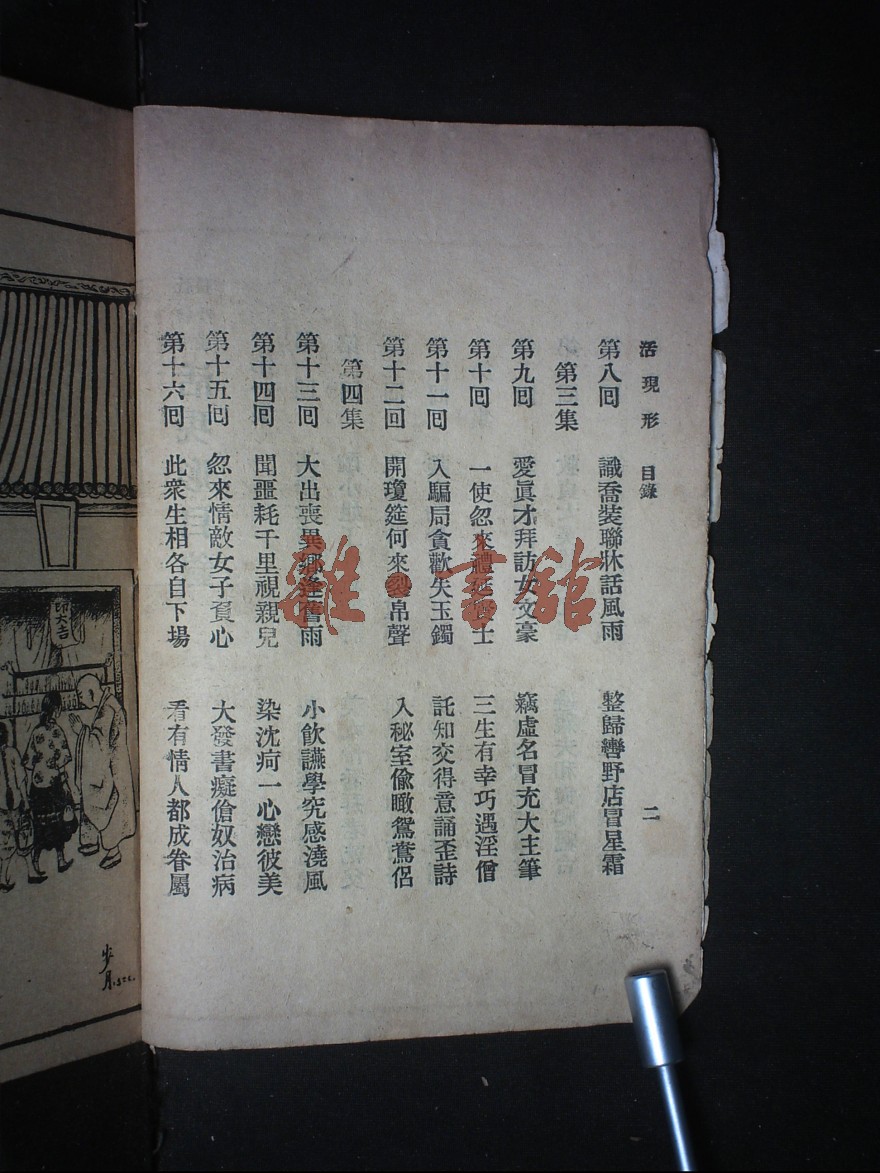 活現形 目錄 二
第八回 識喬裝聯牀話風雨 整歸轡野店冒星霜
第三集
第九回 愛眞才拜訪女文豪 竊虛名冒充大主筆
第十回 一使忽來禮延 士 三生有幸巧遇淫僧
第十一回 入騙局貪歡失玉鐲 託知交得意誦歪詩
第十二回 開瓊筵何來裂帛聲 入秘室偸瞰鴛鴦侶
第四集
第十三回 大出喪異鄉逢舊雨 小飲讌學究感澆風
第十四回 聞噩耗千里視親兒 染沈疴一心戀彼美
第十五回 忽來情敵女子負心 大發書癡傖奴治病
第十六回 此衆生相各自下場 看有情人都成眷屬
雜·書舘
大吉
步月